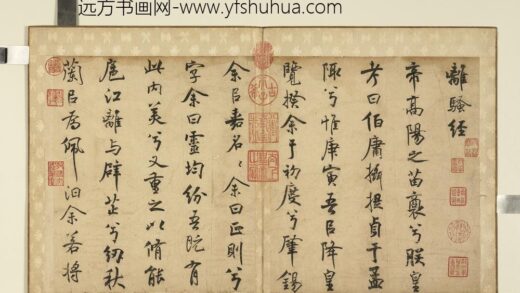 远方书画网-www.yfshuhua.com
離騷经
帝高陽之苗裔兮朕皇
考曰伯庸攝提貞于孟
陬兮惟庚寅吾以降皇
覽揆余于初度兮肇錫
余以嘉名名余曰正則兮
字余曰靈均紛吾既有
此内美兮又重之以脩能
扈江離与辟芷兮纫秋
蘭以為佩汩余若將